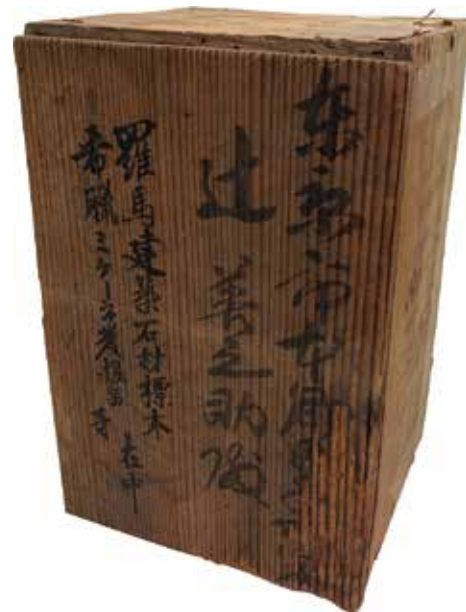 東京市本郷
辻 善之助殿
羅馬建築石材標本
希臘ミケーネ發掘品 等
在中